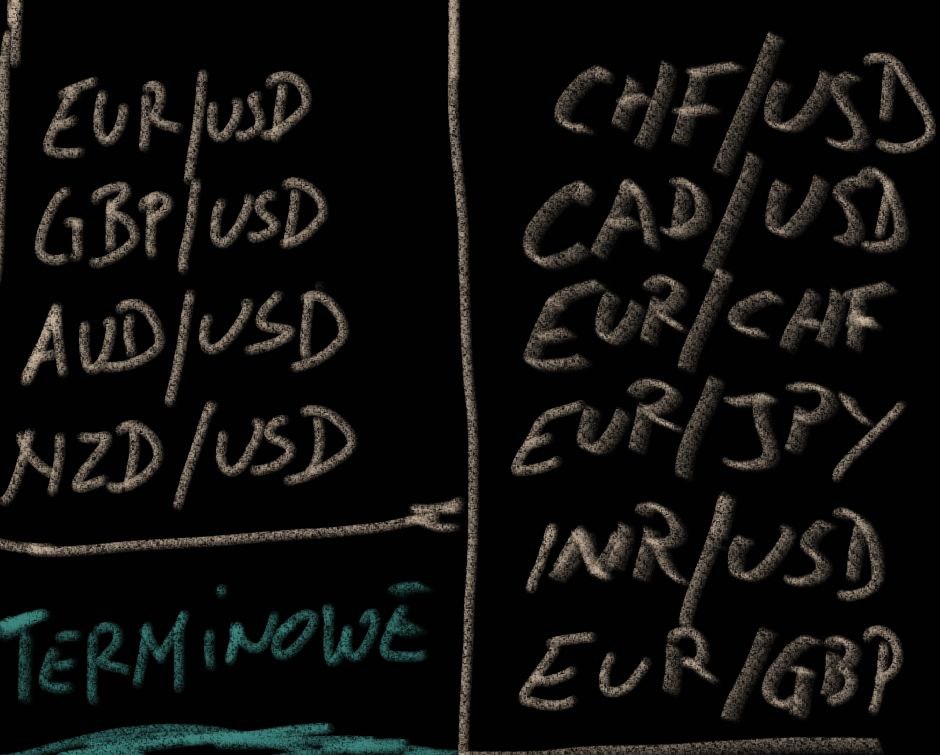 EUR/USD
GBP/USD
AUD/USD
NZD/USD
TERMINOWE
CHF/USD
CAD/USD
EUR/CHF
EUR/JPY
INR/USD
EUR/GBP